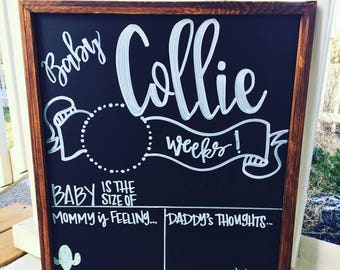 Baby
Collie
weeks!
BABY IS THE
SIZE OF
MOMMY is FEELING... DADDY's THOUGHTS...